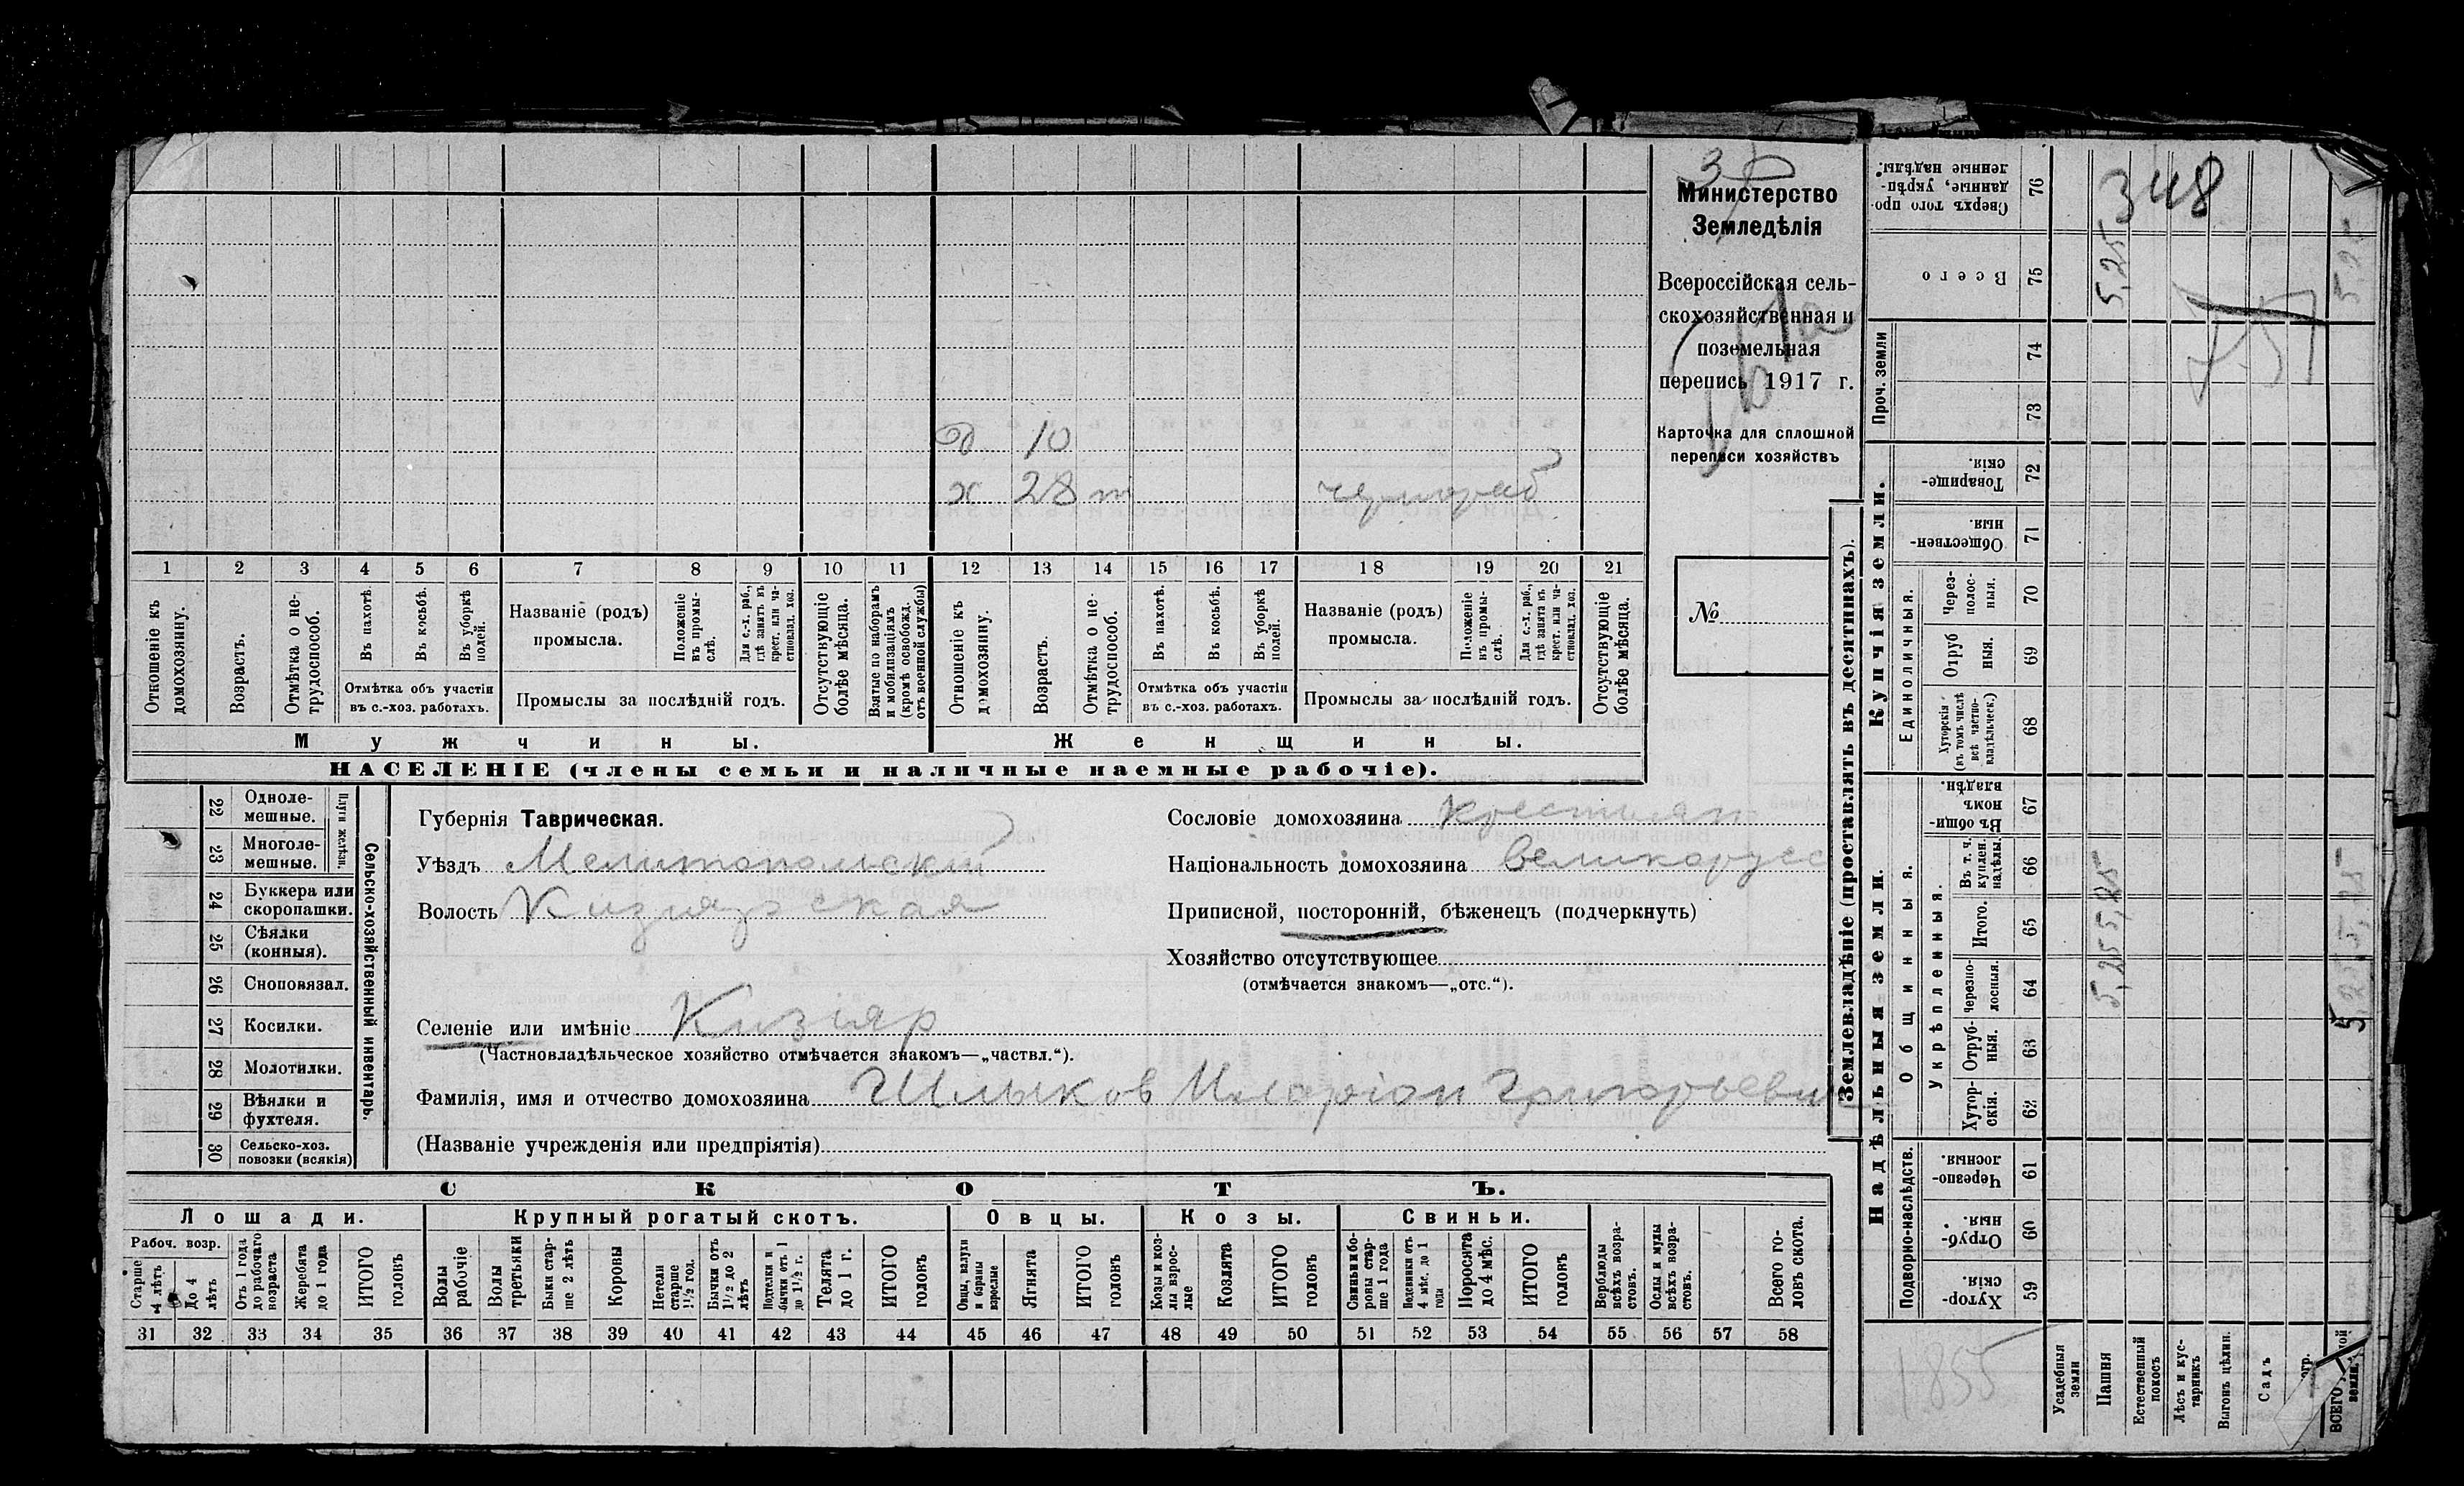 3
Министерство
Земледѣлія
Всероссійская сель-
скохозяйственная и
поземельная
перепись 1917 г.
Карточка для сплошной
переписи хозяйствъ
№
д 10
х 28 т чернораб
1 2 3 4 5 6 7 8 9 10 11 12 13 14 15 16 17 18 19 20 21
Отношеніе къ домохозяину.
Возрастъ.
Отмѣтка о не-трудоспособ.
Въ пахотѣ.
Въ косьбѣ.
Въ уборкѣ полей.
Отмѣтка объ участіи
въ с.-хоз. работахъ.
Названіе (родъ)
промысла.
Положеніе въ промы-слѣ.
Для с.-х. раб., гдѣ занятъ въ крест. или ча-стновлад. хоз.
Промыслы за послѣдній годъ.
Отсутствующіе болѣе мѣсяца.
Взятые по наборамъ и мобилизаціямъ (кромѣ освобожд. отъ военной службы)
Отношеніе къ домохозяину.
Возрастъ.
Отмѣтка о не-трудоспособ.
Въ пахотѣ.
Въ косьбѣ.
Въ уборкѣ полей.
Отмѣтка объ участіи
въ с.-хоз. работахъ.
Названіе (родъ)
промысла.
Положеніе въ промы-слѣ.
Для с.-х. раб., гдѣ занята въ крест. или ча-стновлад. хоз.
Промыслы за послѣдній годъ.
Отсутствующіе болѣе мѣсяца.
Мужчины.
Женщины.
НАСЕЛЕНІЕ (члены семьи и наличные наемные рабочіе).
Сельско-хозяйственный инвентарь.
Плуги желѣзн.
22 Одноле-мешные.
23 Многоле-мешные.
24 Буккера или скоропашки.
25 Сѣялки (конныя).
26 Сноповязал.
27 Косилки.
28 Молотилки.
29 Вѣялки и фухтеля.
30 Сельско-хоз. повозки (всякія)
Губернія Таврическая.
Уѣздъ Мелитопольскій
Волость Кизіярская
Селеніе или имѣніе Кизіяр
(Частновладѣльческое хозяйство отмѣчается знакомъ—„частвл.“).
Фамилія, имя и отчество домохозяина Шлыков Иларіон Григорьевич
(Названіе учрежденія или предпріятія)
Сословіе домохозяина крестьян
Національность домохозяина Великорусс
Приписной, посторонній, бѣженецъ (подчеркнуть)
Хозяйство отсутствующее
(отмѣчается знакомъ—„отс.“).
СКОТЪ.
Лошади. Крупный рогатый скотъ. Овцы. Козы. Свиньи.
Рабоч. возр.
Старше 4 лѣтъ
До 4 лѣтъ
Отъ 1 года до рабочаго возраста
Жеребята до 1 года
ИТОГО головъ
Волы рабочіе
Волы третьяки
Быки стар-ше 2 лѣтъ
Коровы
Нетели старше 1½ год.
Бычки отъ 1½ до 2 лѣтъ
Подтелки и бычки отъ 1 до 1½ г.
Телята до 1 г.
ИТОГО головъ
Овцы, валухи и бараны взрослые
Ягнята
ИТОГО головъ
Козы и коз-лы взрос-лые
Козлята
ИТОГО головъ
Свиньи и бо-ровы стар-ше 1 года
Подсвинки отъ 4 мѣс. до 1 года
Поросята до 4 мѣс.
ИТОГО головъ
Верблюды всѣхъ возра-стовъ.
Ослы и мулы всѣхъ возра-стовъ.
Всего го-ловъ скота.
31 32 33 34 35 36 37 38 39 40 41 42 43 44 45 46 47 48 49 50 51 52 53 54 55 56 57 58
Землевладѣніе (проставлять въ десятинахъ).
Надѣльныя земли.
Купчія земли.
Проч. земли
Подворно-наслѣдств.
Общинныя.
Укрѣпленныя.
Единоличныя.
59 Хутор-скія.
60 Отруб-ныя.
61 Черезпо-лосныя.
62 Хутор-скія.
63 Отруб-ныя.
64 Черезпо-лосныя.
65 Итого.
66 Въ т. ч. куплен. надѣлы.
67 Въ общи-номъ владѣн.
68 Хуторскія (въ томъ числѣ всѣ частно-владѣльческ.)
69 Отруб ныя.
70 Через-полос-ныя.
71 Обществен-ныя.
72 Товарище-скія.
73
74
75 Всего
76 Сверхъ того про-данные, укрѣп-ленные надѣлы.
Усадебныя земли
Пашня
Естественный покосъ
Лѣсъ и кус-тарникъ
Выгонъ цѣлин.
Садъ
ВСЕГО
земли.
348
5,25
5,25
5,25 5,25
5,25 5,25
1855